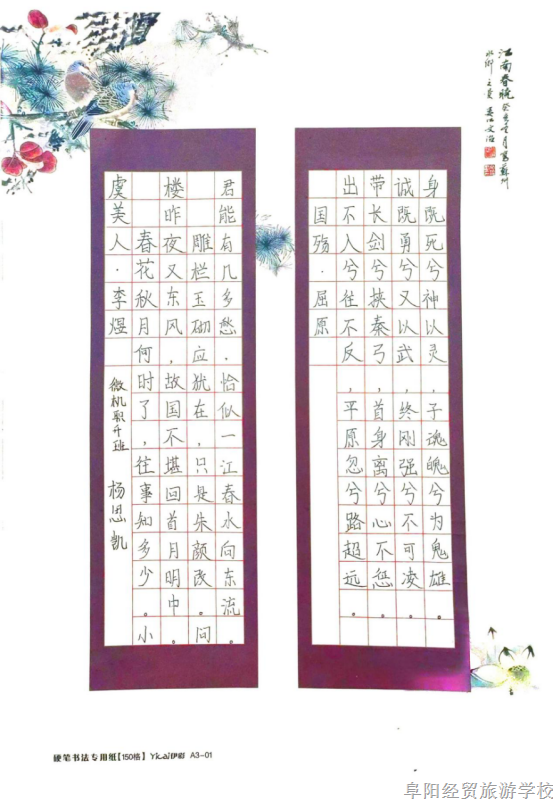 江南春晓
虞美人·李煜
春花秋月何时了，往事知多少。小
楼昨夜又东风，故国不堪回首月明中。
雕栏玉砌应犹在，只是朱颜改。问
君能有几多愁.恰似一江春水向东流。
微机职升班 杨思凯
国殇·屈原
出不入兮往不反，平原忽兮路超远。
带长剑兮挟秦弓，首身离兮心不惩。
诚既勇兮又以武，终刚强兮不可凌。
身既死兮神以灵，子魂魄兮为鬼雄。
硬笔书法专用纸【150格】 Yicai伊彩 A3-01
阜阳经贸旅游学校